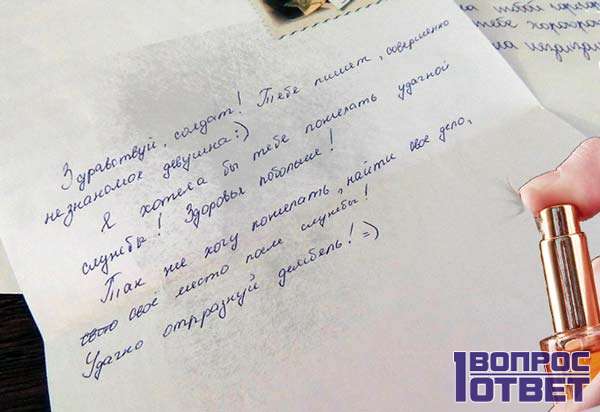 Здравствуй, солдат! Тебе пишет, совершенно
незнакомая девушка:)
Я хотела бы тебе пожелать удачной
службы! Здоровья побольше!
Так же хочу пожелать, найти свое дело,
свое место после службы!
Удачно отпразнуй дембель! =)
1ВОПРОС
ОТВЕТ